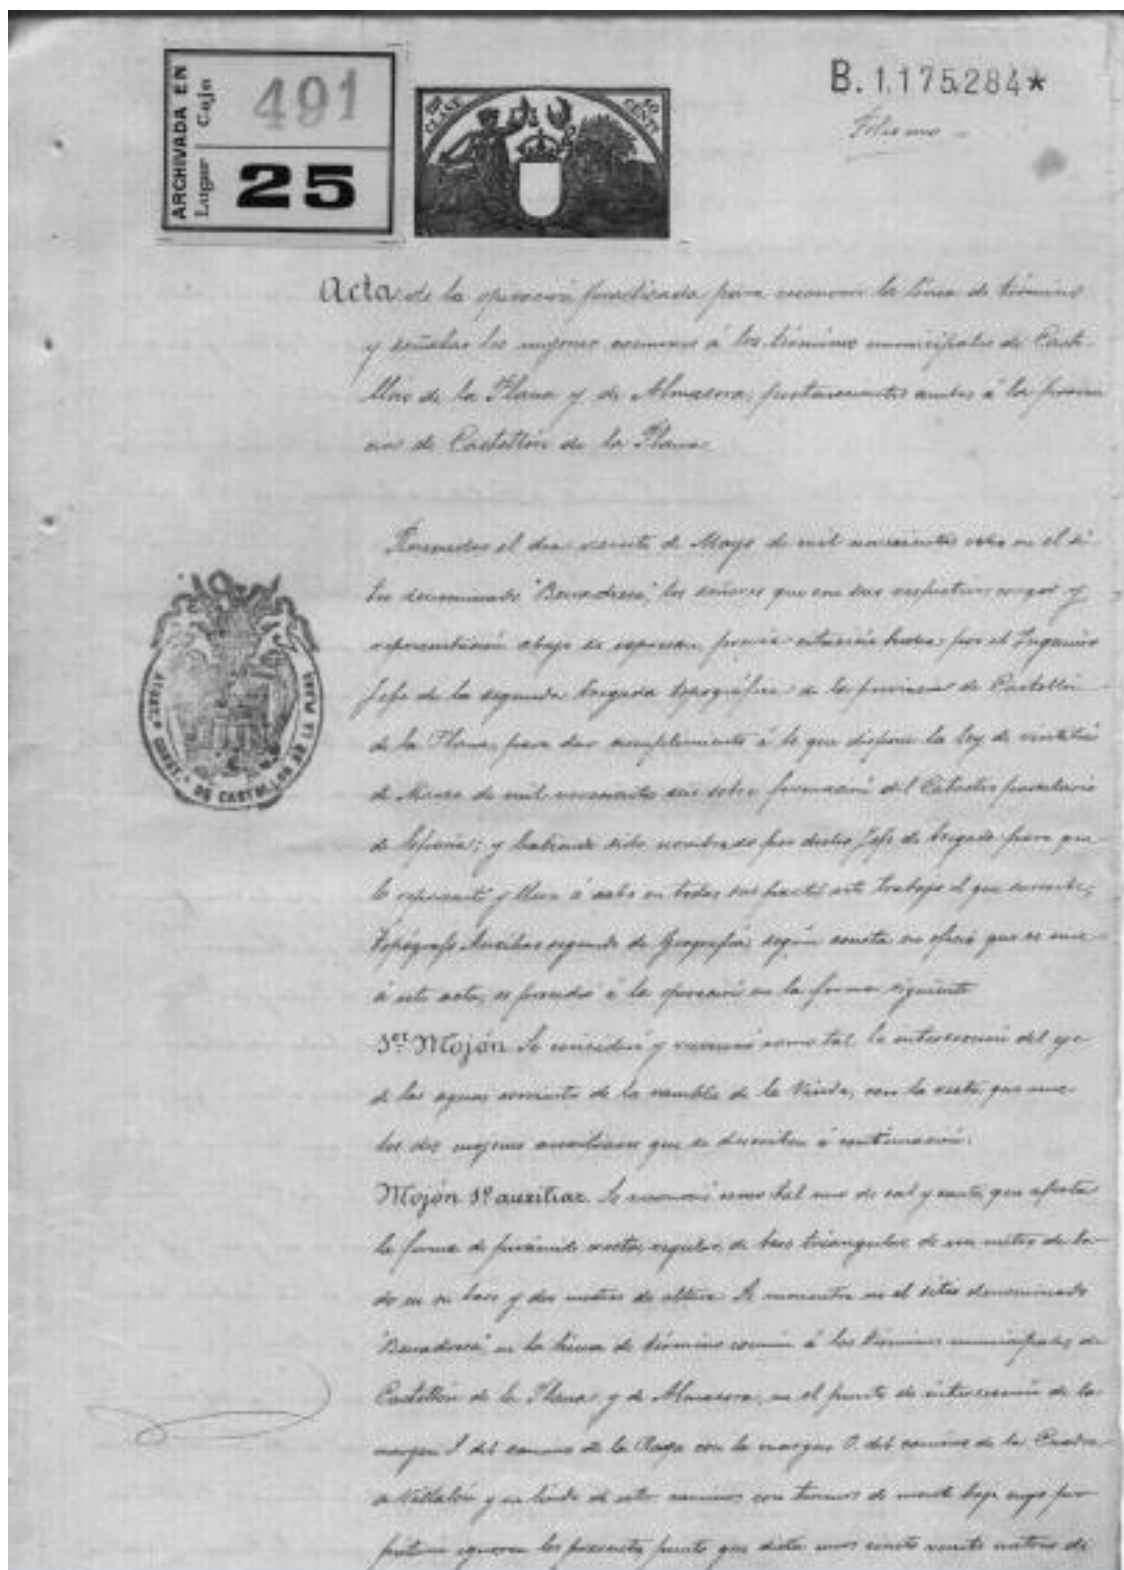 ARCHIVADA EN
Caja 491
Lugar 25
CLASE
CENT.
B. 1.175.284*
Folio uno
Acta de la operación practicada para reconocer la línea de término
y señalar los mojones comunes á los términos municipales de Caste-
llón de la Plana y de Almazora, pertenecientes ambos á la provin-
cia de Castellón de la Plana
Reunidos el día veinte de Mayo de mil novecientos ocho en el si-
tio denominado "Benadresa", los señores que con sus respectivos cargos y
representación abajo se expresan, previa citación hecha por el Ingeniero
Jefe de la segunda brigada topográfica de la provincia de Castellón
de la Plana, para dar cumplimiento á lo que dispone la ley de veintitrés
de Marzo de mil novecientos seis sobre formación del Catastro parcelario
de España; y habiendo sido nombrado por dicho Jefe de brigada para que
le represente y lleve á cabo en todas sus partes este trabajo el que suscribe,
Topógrafo Auxiliar segundo de Geografía, según consta en oficio que se une
á este acta, se procedió á la operación en la forma siguiente
1er Mojón. Se consideró y reconoció como tal la intersección del eje
de las aguas corrientes de la rambla de la Viuda, con la recta que une
los dos mojones auxiliares que se describen á continuación.
Mojón 1º auxiliar. Se reconoció como tal uno de cal y canto, que afecta
la forma de pirámide recta, regular, de base triangular, de un metro de la-
do en su base y dos metros de altura. Se encuentra en el sitio denominado
"Benadresa", en la línea de término común á los términos municipales de
Castellón de la Plana y de Almazora, en el punto de intersección de la
margen S. del camino de la con la margen O. del camino de la Cuadra
y en linde de este camino con terreno de monte bajo cuyo pro-
pietario ignoran los presentes, punto que dista unos ciento veinte metros de
AYUNT.º CONST.L DE CASTELLON DE LA PLANA